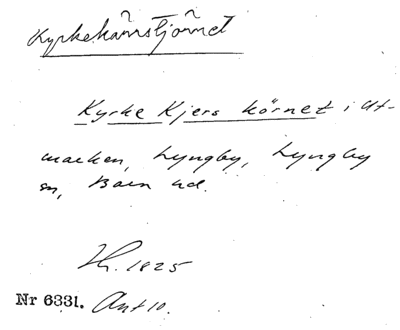 Kyrkekärrstjörnet
Kyrke Kjers körnet i ut-
marken, Lyngby, Lyngby
sn, Baen hd.
Th. 1825
Nr 6331. Ant 10.